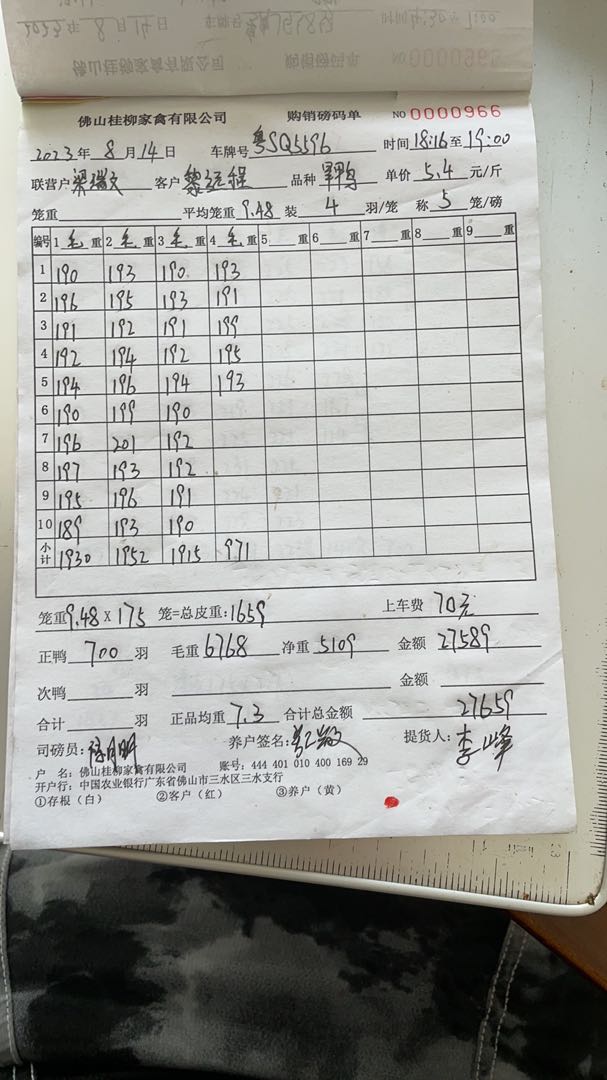 佛山桂柳家禽有限公司 购销磅码单 NO 0000966
2023年8月14日 车牌号 粤SQ5596 时间 18:16至19:00
联营户 梁瑞文 客户 黎 程 品种 单价 5.4 元/斤
笼重 平均笼重 9.48 装 4 羽/笼 称 5 笼/磅
编号 1 毛 重 2 毛 重 3 毛 重 4 毛 重 5 重 6 重 7 重 8 重 9 重
1 190 193 190 193
2 196 195 193 191
3 191 192 191 199
4 192 194 192 195
5 194 196 194 193
6 190 199 190
7 196 201 192
8 197 193 192
9 195 196 191
10 189 193 190
小计 1930 1952 1915 971
笼重 9.48 x 175 笼=总皮重: 1659 上车费 70元
正鸭 700 羽 毛重 6768 净重 5109 金额 27589
次鸭 羽 金额
合计 羽 正品均重 7.3 合计总金额 27659
司磅员: 养户签名: 提货人: 李 峰
户 名: 佛山桂柳家禽有限公司 账号: 444 401 010 400 169 29
开户行: 中国农业银行广东省佛山市三水区三水支行
①存根（白） ②客户（红） ③养户（黄）